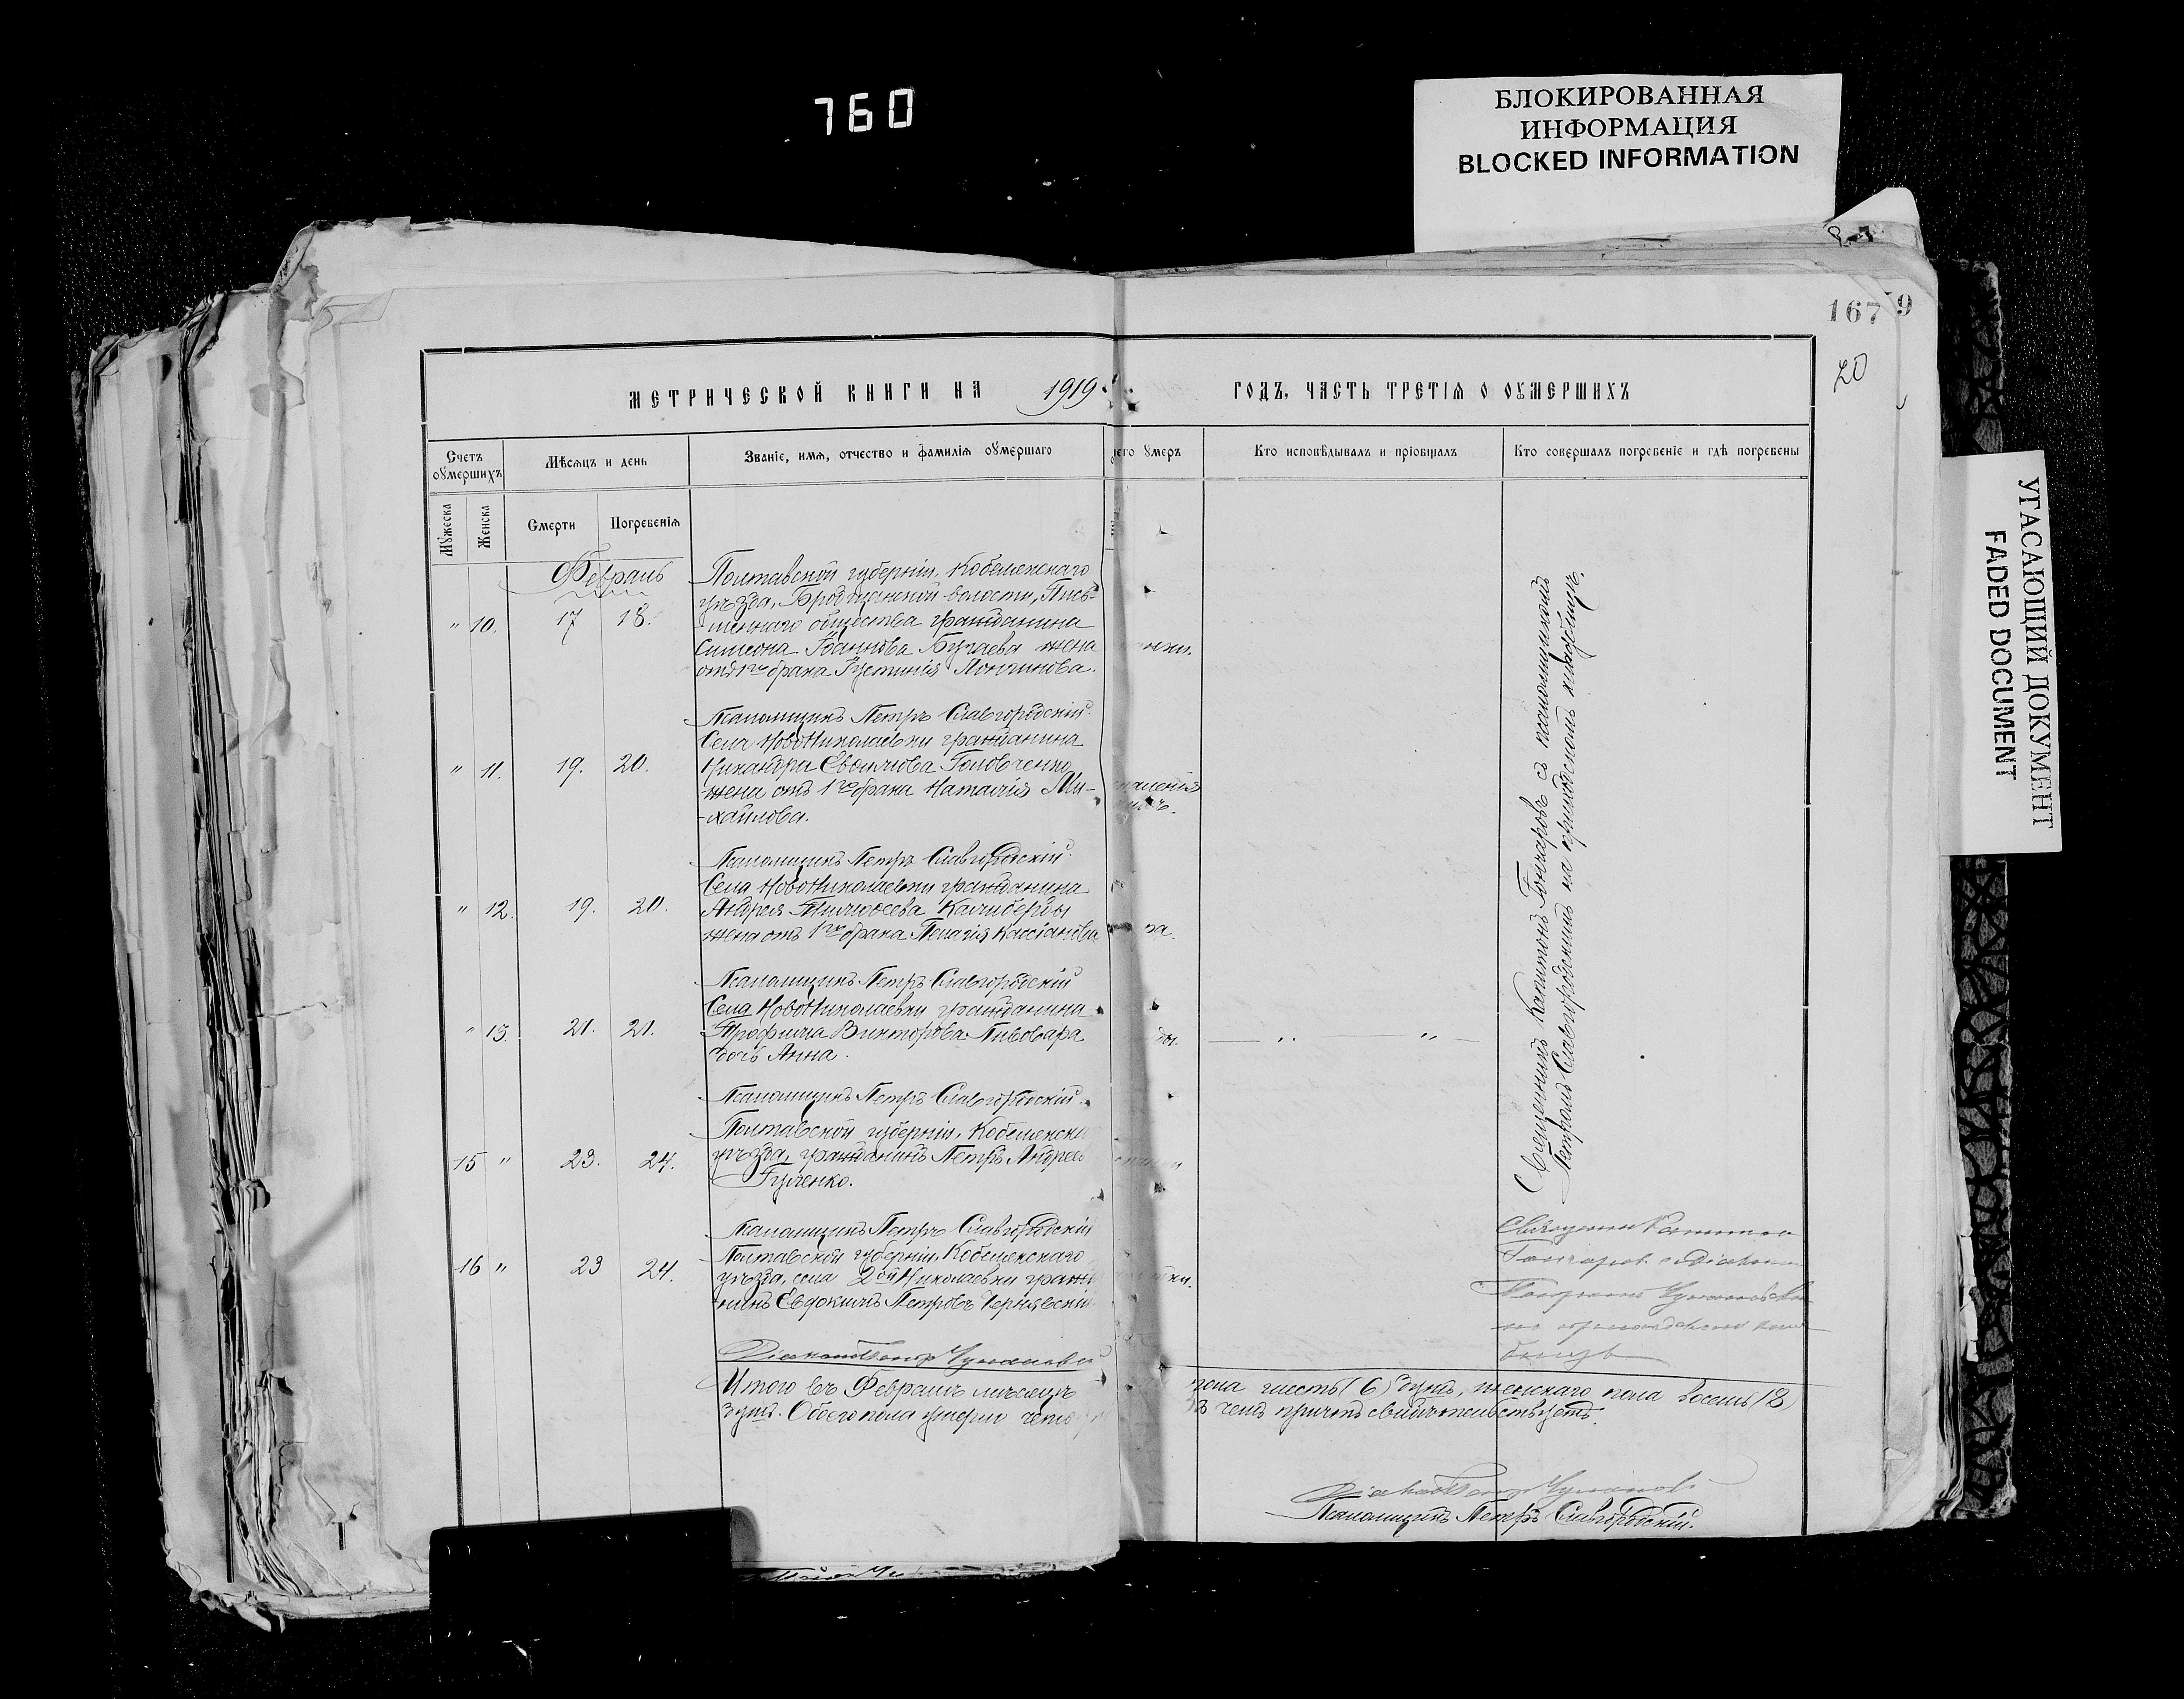 760
БЛОКИРОВАННАЯ
ИНФОРМАЦИЯ
BLOCKED INFORMATION
УГАСАЮЩИЙ ДОКУМЕНТ
FADED DOCUMENT
167
9
20
МЕТРИЧЕСКОЙ КНИГИ НА 1919 ГОДЪ, ЧАСТЬ ТРЕТІЯ О ОУМЕРШИХЪ
Счетъ оумершихъ
Мѣсяцъ и день
Званіе, имя, отчество и фамилія оумершаго
его умеръ
Кто исповѣдывалъ и пріобщалъ
Кто совершалъ погребеніе и гдѣ погребены
Мужеска
Женска
Смерти
Погребенія
Февраль
Полтавской губерніи, Кобелякскаго
уѣзда, волости,
" 10. 17 18. общества гражданина
Симеона Іоаннова жена
отъ 1го брака Іустинія
Псаломщикъ Петръ Славгородскій.
Села НовоНиколаевки гражданина
" 11. 19. 20. Никандра Головченко
жена отъ 1го брака Наталія Ми-
-хайлова.
Псаломщикъ Петръ Славгородскій.
Села НовоНиколаевки гражданина
" 12. 19. 20. Андрея Калиберды
жена отъ 1го брака Пелагія Кассіанова
Псаломщикъ Петръ Славгородскій
Села НовоНиколаевки гражданина
" 13. 21. 21. Трофима Викторова Пивовара
дочь Анна.
Псаломщикъ Петръ Славгородскій.
Полтавской губерніи, Кобелякска
15 " 23. 24. уѣзда, гражданинъ Петръ Андреев
Гученко.
Псаломщикъ Петръ Славгородскій
Полтавской губерніи, Кобелякскаго
16 " 23 24. уѣзда, села 2ой Николаевки гражда
нинъ Евдокимъ Петровъ Чернявскій
Діаконъ Петръ
Итого въ Февралѣ мѣсяцѣ
душъ. Обоего пола умерло четы
пола шесть (6) душъ, женскаго пола восемь (8)
в чемъ причтъ свидѣтельствуетъ.
Діаконъ Петръ
Псаломщикъ Петръ Славгородскій.
Священникъ Капитонъ Гончаровъ съ псаломщикомъ
Петромъ Славгородскимъ на приходскомъ кладбищѣ.
Священникъ Капитонъ
Гончаровъ с Діакономъ
Петромъ
на приходскомъ клад
бищѣ